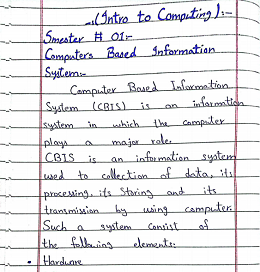 (Intro to Computing):-
Smester # 01:-
Computers Based Information
System:-
Computer Based Information
System (CBIS) is an information
system in which the computer
plays a major role.
CBIS is an information system
used to collection of data, its
processing, its storing and its
transmission by using computer.
Such a system consist of
the following elements:
• Hardware